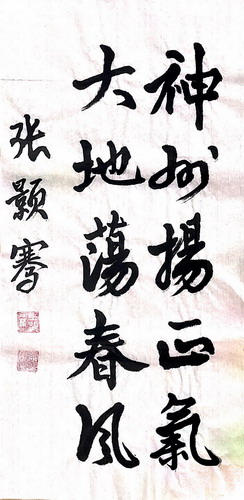 神州揚正氣
大地蕩春风
张颢骞